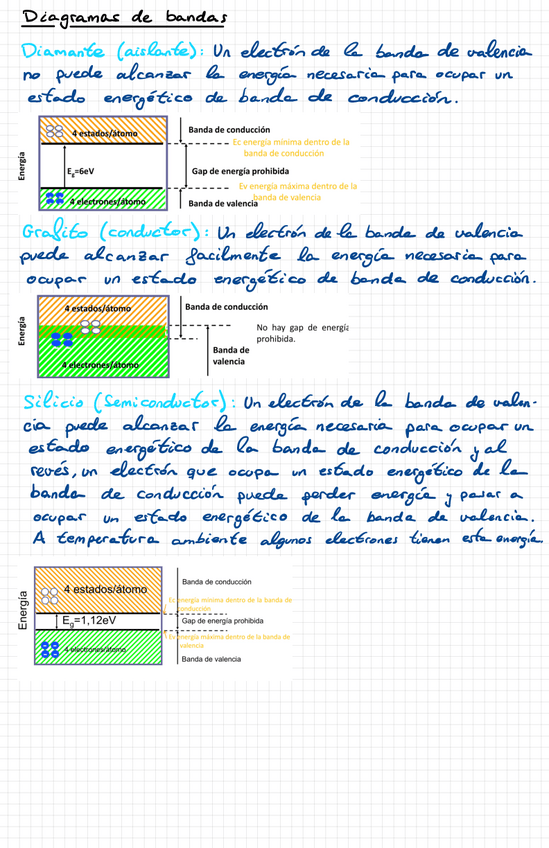 Diagramas de bandas
Diamante (aislante): Un electrón de la banda de valencia
no puede alcanzar la energía necesaria para ocupar un
estado energético de banda de conducción.
Energía
4 estados/átomo
Eg=6eV
4 electrones/átomo
Banda de conducción
Ec energía mínima dentro de la
banda de conducción
Gap de energía prohibida
Ev energía máxima dentro de la
banda de valencia
Banda de valencia
Grafito (conductor): Un electrón de la banda de valencia
puede alcanzar facilmente la energía necesaria para
ocupar un estado energético de banda de conducción.
Energía
4 estados/átomo
4 electrones/átomo
Banda de conducción
Banda de
valencia
No hay gap de energía
prohibida.
Silicio (Semiconductor): Un electrón de la banda de valen-
cia puede alcanzar la energía necesaria para ocupar un
estado energético de la banda de conducción y al
revés, un electrón que ocupa un estado energético de la
banda de conducción puede perder energía y pasar a
ocupar un estado energético de la banda de valencia.
A temperatura ambiente algunos electrones tienen esta energía.
Energía
4 estados/átomo
Eg=1,12eV
4 electrones/átomo
Banda de conducción
Ec energía mínimo dentro de la banda de
conducción
Gap de energía prohibida
Ev energía máxima dentro de la banda de
valencia
Banda de valencia